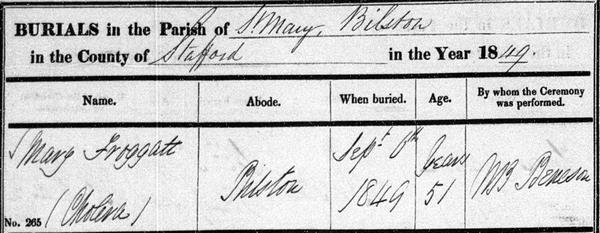 BURIALS in the Parish of St. Mary, Bilston
in the County of Stafford in the Year 1849
Name. Abode. When buried. Age. By whom the Ceremony was performed.
Mary Froggatt
(Cholera)
No. 265
Bilston
Sept 8th
1849
Years
51